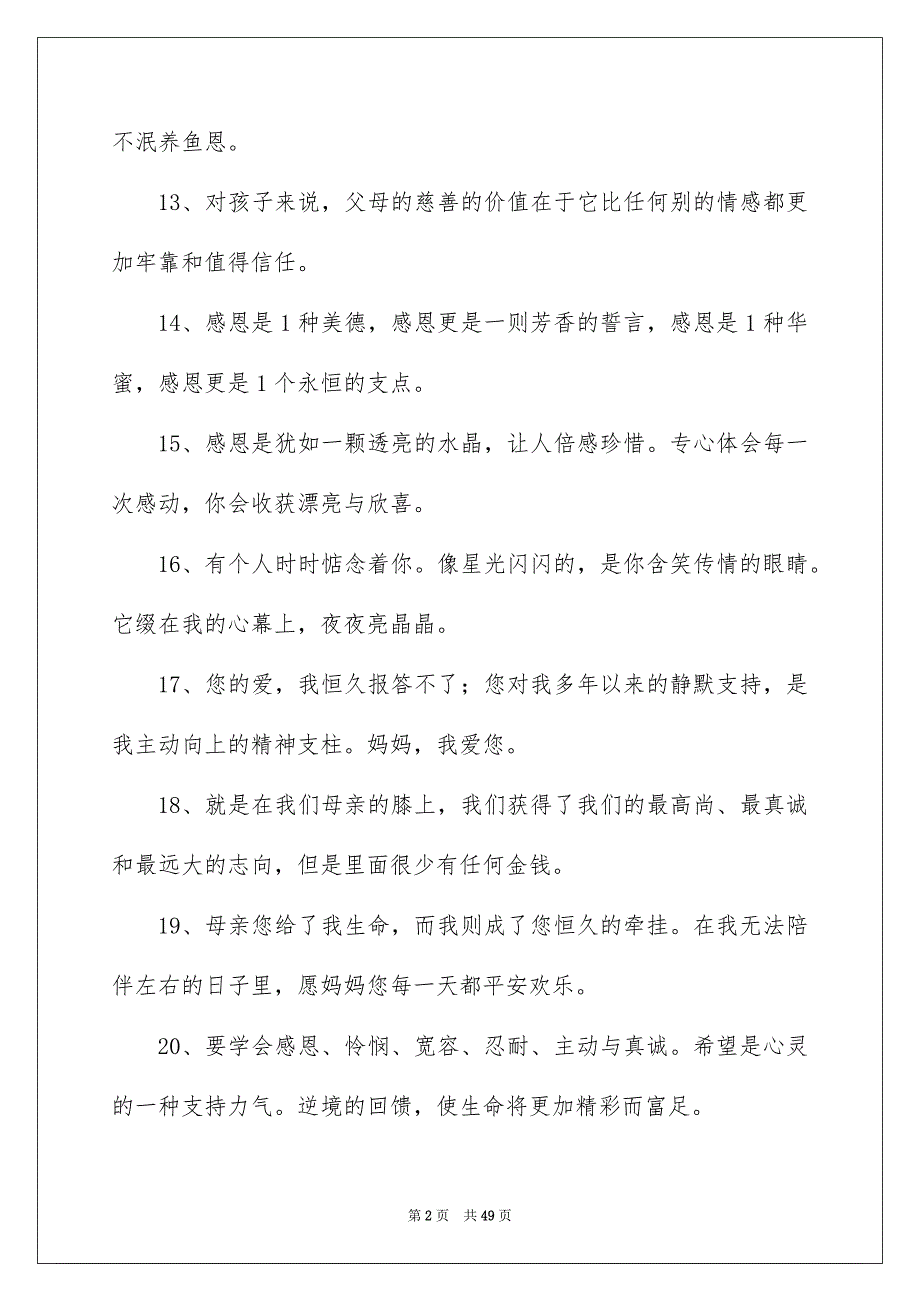 不泯养鱼恩。
13、对孩子来说，父母的慈善的价值在于它比任何别的情感都更
加牢靠和值得信任。
14、感恩是1种美德，感恩更是一则芳香的誓言，感恩是1种华
蜜，感恩更是1个永恒的支点。
15、感恩是犹如一颗透亮的水晶，让人倍感珍惜。专心体会每一
次感动，你会收获漂亮与欣喜。
16、有个人时时惦念着你。像星光闪闪的，是你含笑传情的眼睛。
它缀在我的心幕上，夜夜亮晶晶。
17、您的爱，我恒久报答不了；您对我多年以来的静默支持，是
我主动向上的精神支柱。妈妈，我爱您。
18、就是在我们母亲的膝上，我们获得了我们的最高尚、最真诚
和最远大的志向，但是里面很少有任何金钱。
19、母亲您给了我生命，而我则成了您恒久的牵挂。在我无法陪
伴左右的日子里，愿妈妈您每一天都平安欢乐。
20、要学会感恩、怜悯、宽容、忍耐、主动与真诚。希望是心灵
的一种支持力气。逆境的回馈，使生命将更加精彩而富足。
第 2 页 共 49 页